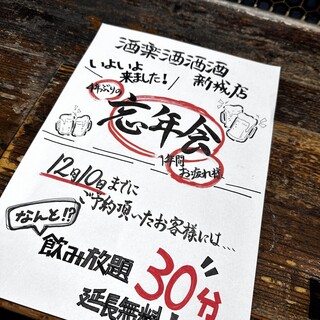 酒楽酒酒酒
いよいよ
来ました！/ 新城店
4年ぶりの
忘年会
1年間
お疲れ様
12月10日までに
ご予約頂いたお客様には…
なんと!?
飲み放題
30分
延長無料！